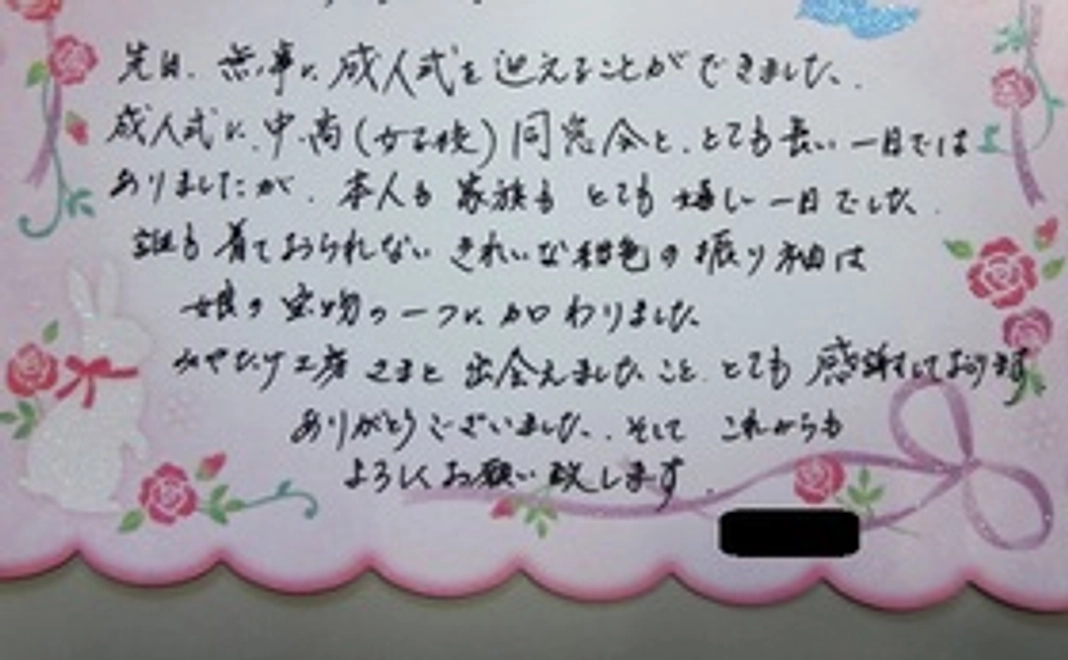 先日、無事に成人式を迎えることができました。
成人式に、中・高(女子校)同窓会と、とても長い一日では
ありましたが、本人も家族もとても嬉しい一日でした。
誰も着ておられないきれいな紺色の振り袖は
娘の宝物の一つに加わりました
みやたけ工房さまと出会えましたこと、とても感謝しております
ありがとうございました。そしてこれからも
よろしくお願い致します。